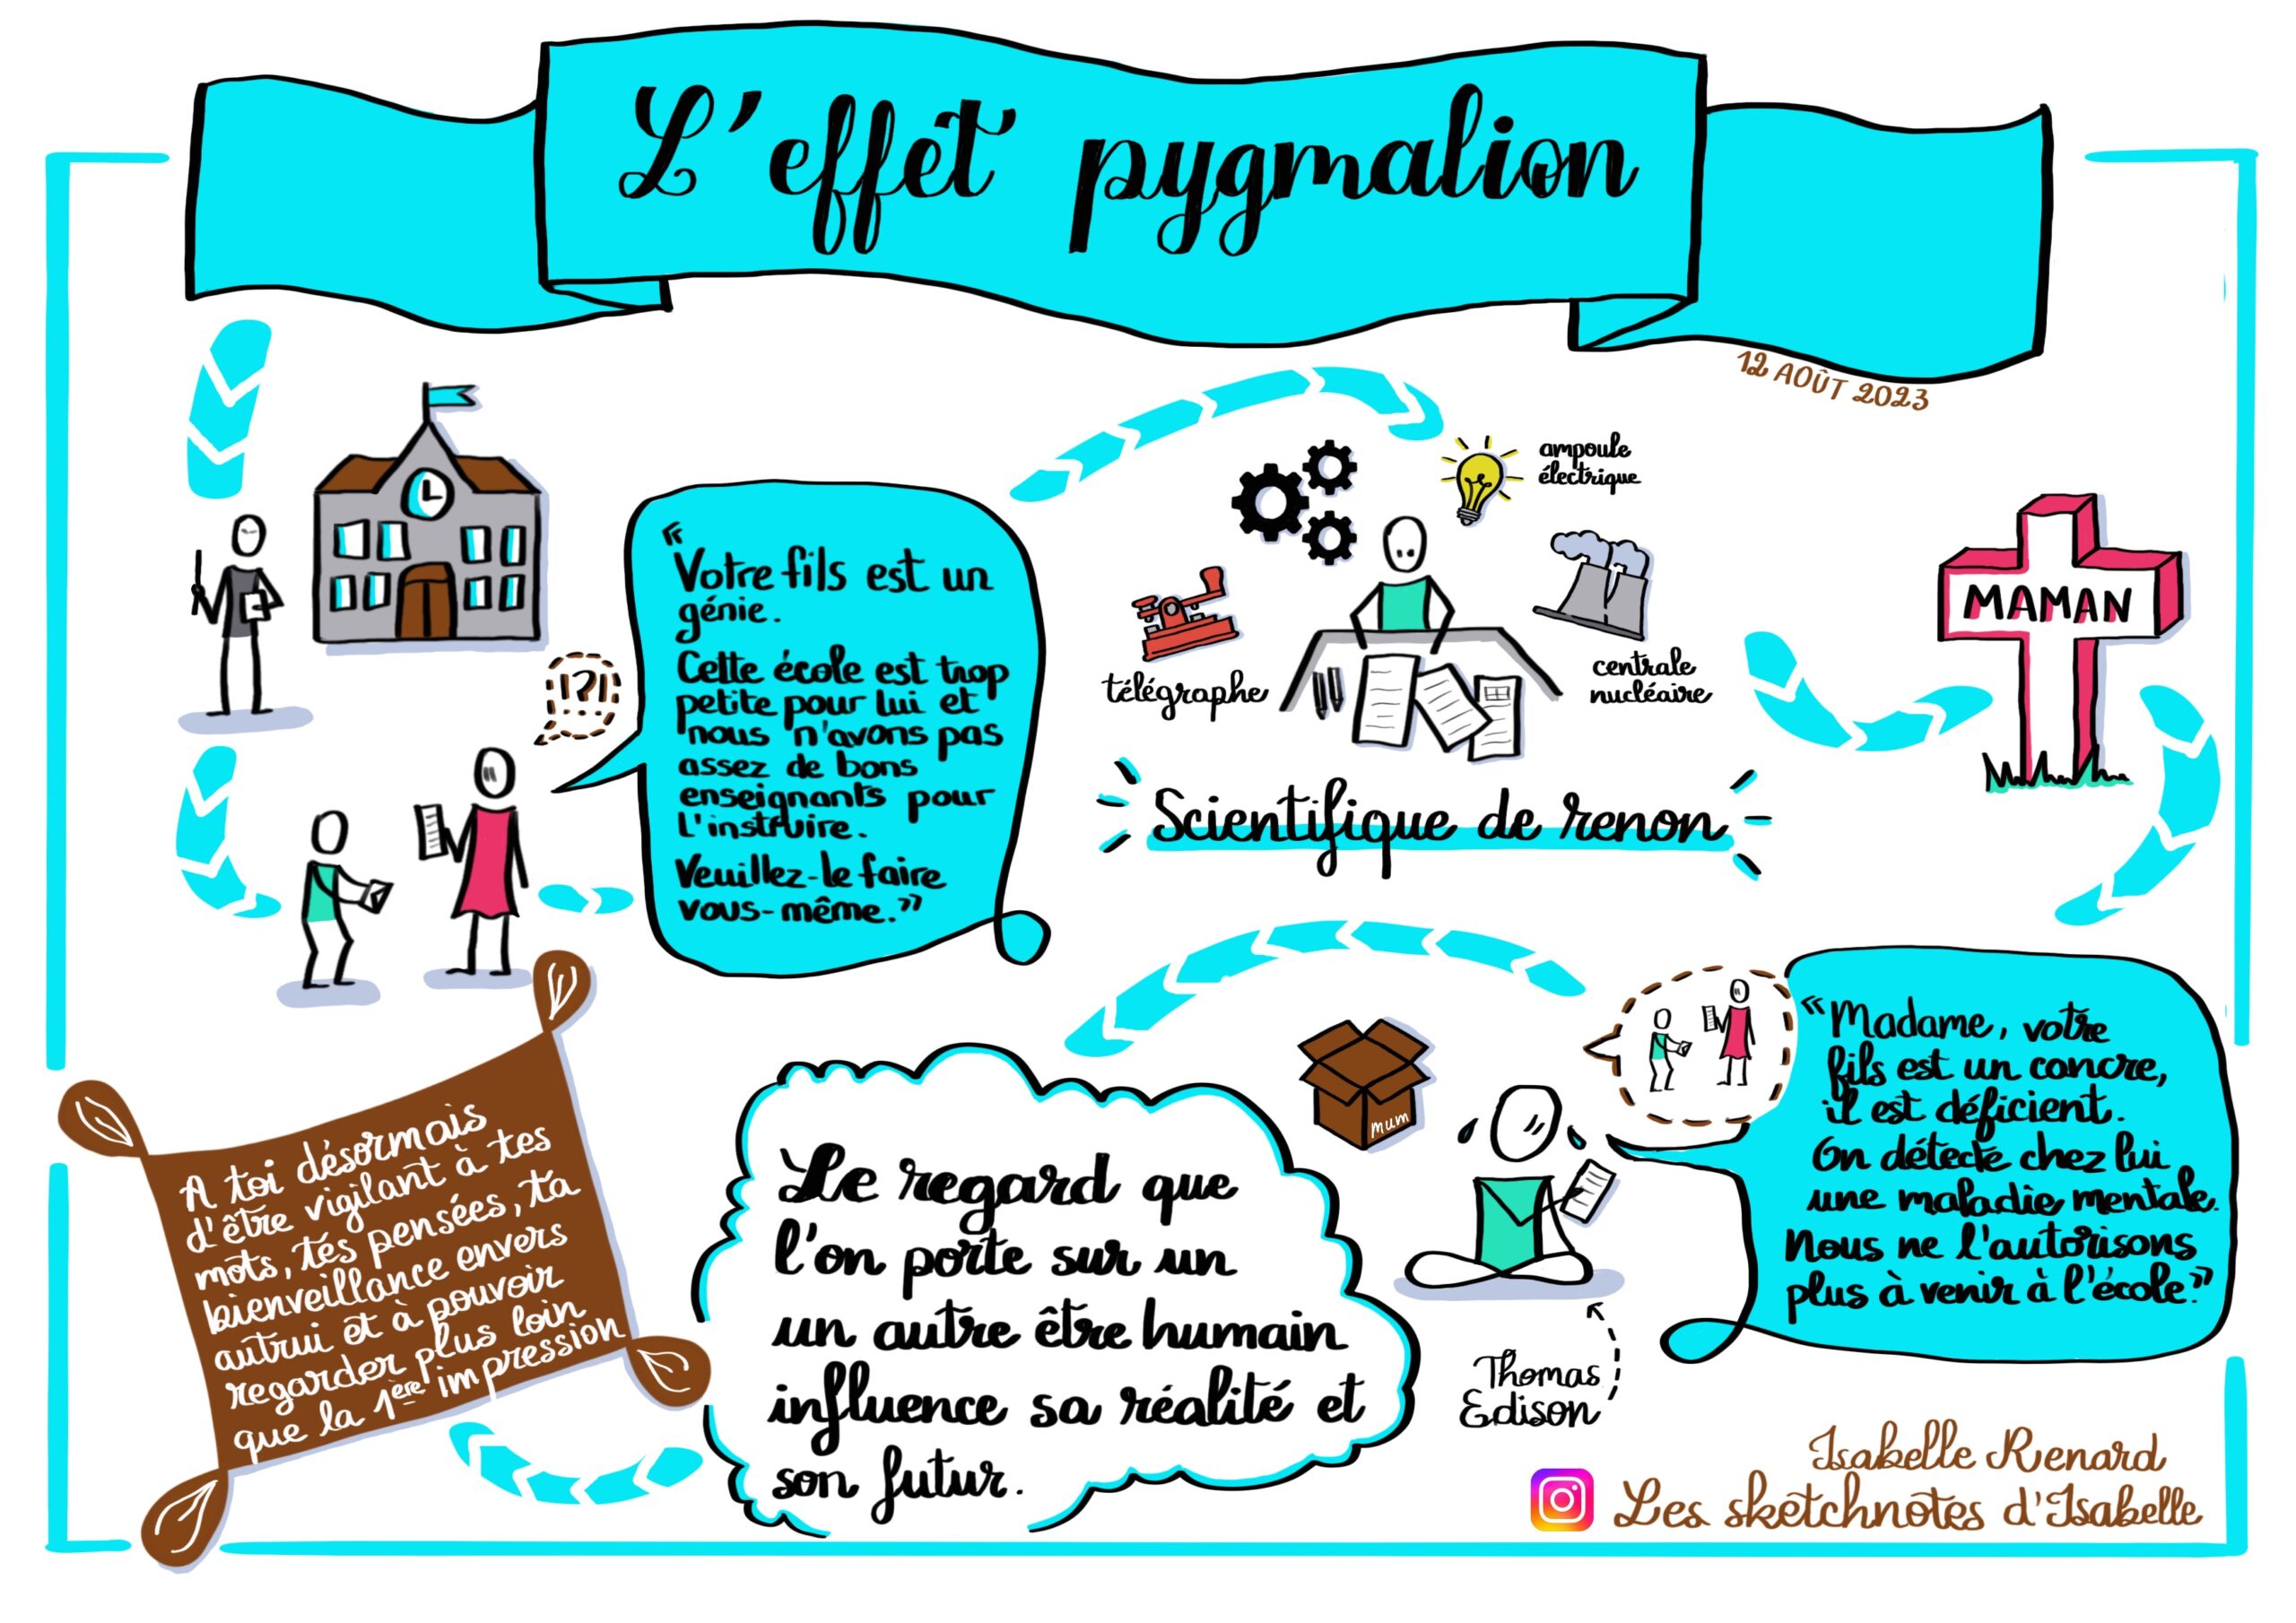 L'effet pygmalion
12 AOÛT 2023
!?!
...
"Votre fils est un
génie.
Cette école est trop
petite pour lui et
nous n'avons pas
assez de bons
enseignants pour
l'instruire.
Veuillez-le faire
vous-même."
ampoule
électrique
télégraphe
centrale
nucléaire
Scientifique de renon
MAMAN
"Madame, votre
fils est un concre,
il est déficient.
On détecte chez lui
une maladie mentale.
Nous ne l'autorisons
plus à venir à l'école."
mum
Thomas
Edison
Le regard que
l'on porte sur un
un autre être humain
influence sa réalité et
son futur.
A toi désormais
d'être vigilant à tes
mots, tes pensées, ta
bienveillance envers
autrui et à pouvoir
regarder plus loin
que la 1ère impression
Isabelle Renard
Les sketchnotes d'Isabelle